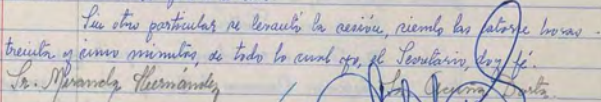 Sin otro particular se levantó la sesión, siendo las catorce horas -
treinta y cinco minutos, de todo lo cual yo, el Secretario, doy fé.
Sr. Miranda Hernández Sr.